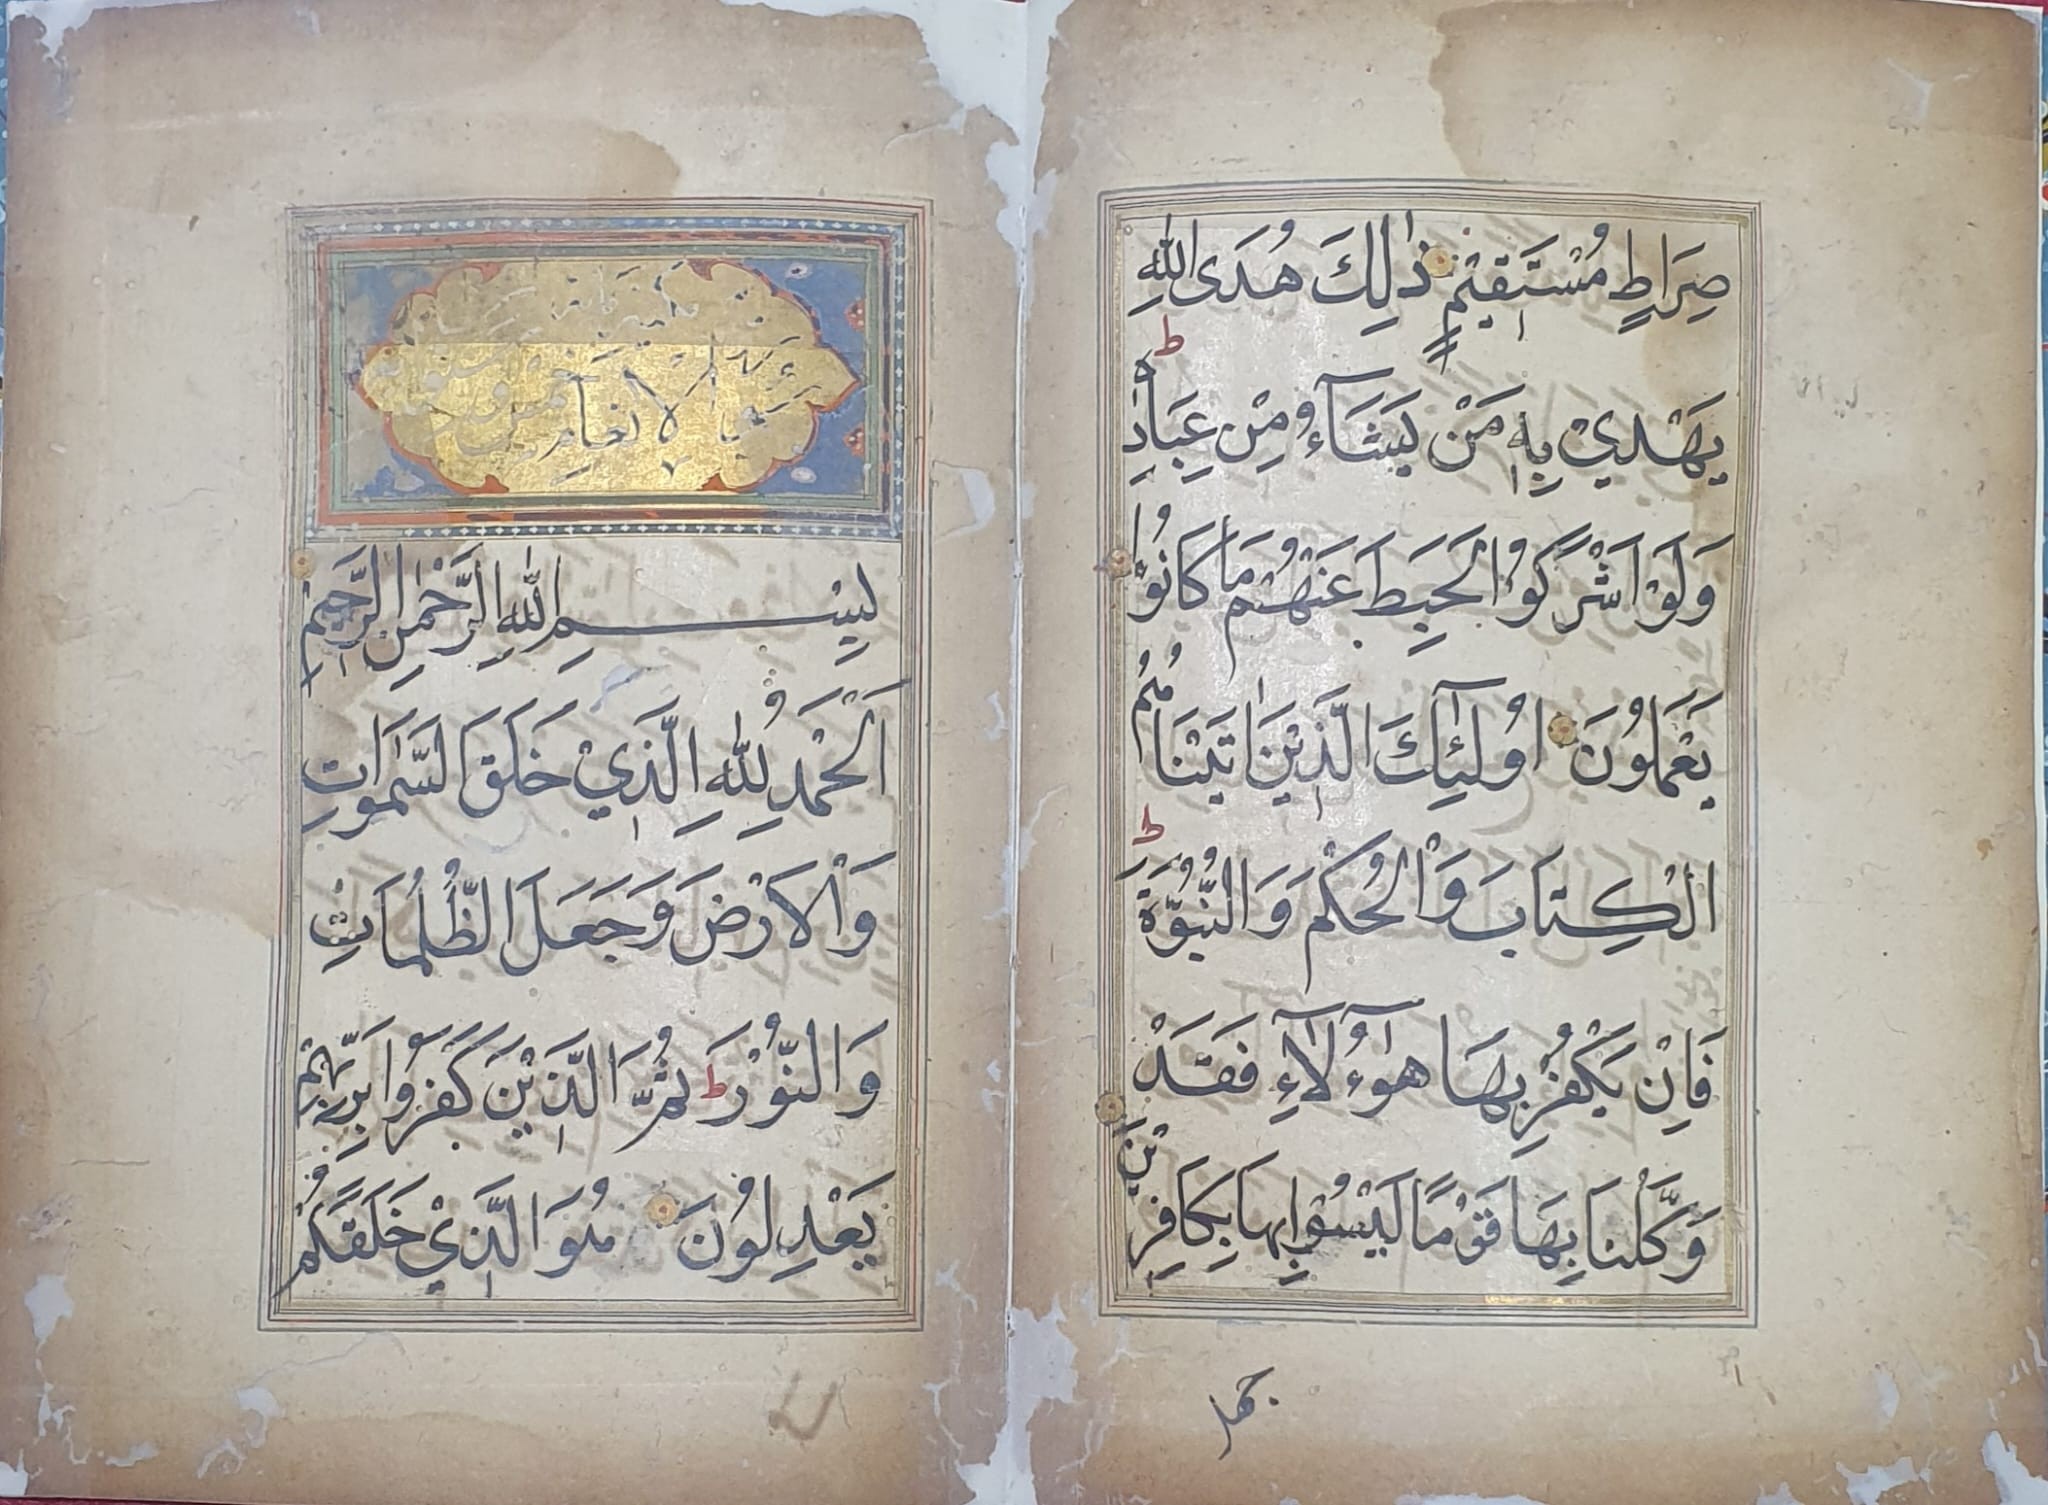 صِرَاطٍ مُسْتَقِيْمٍ ذٰلِكَ هُدَى اللّٰهِ
ط
يَهْدِيْ بِهٖ مَنْ يَشَآءُ مِنْ عِبَادِهٖ
وَلَوْ اَشْرَكُوْا لَحَبِطَ عَنْهُمْ مَا كَانُوْا
يَعْمَلُوْنَ اُولٰٓئِكَ الَّذِيْنَ اٰتَيْنَاهُمُ
ط
الْكِتَابَ وَالْحُكْمَ وَالنُّبُوَّةَ
فَاِنْ يَكْفُرْ بِهَا هٰٓؤُلَآءِ فَقَدْ
وَكَّلْنَا بِهَا قَوْمًا لَيْسُوْا بِهَا بِكَافِرِيْنَ
سورة الانعام
بِسْمِ اللّٰهِ الرَّحْمٰنِ الرَّحِيْمِ
اَلْحَمْدُ لِلّٰهِ الَّذِيْ خَلَقَ السَّمٰوَاتِ
وَالْاَرْضَ وَجَعَلَ الظُّلُمَاتِ
وَالنُّوْرَ ط ثُمَّ الَّذِيْنَ كَفَرُوْا بِرَبِّهِمْ
يَعْدِلُوْنَ هُوَ الَّذِيْ خَلَقَكُمْ